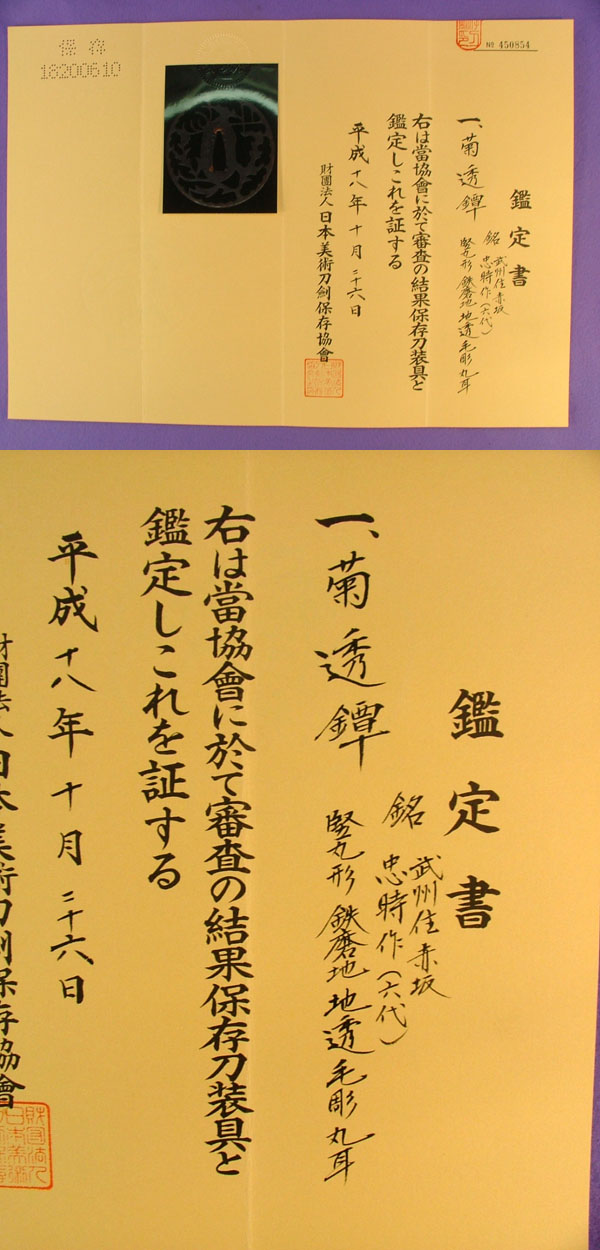 保存
18200610
№ 450854
鑑定書
一、菊透鐔
銘 武州住赤坂
忠時作(六代)
竪丸形 鉄磨地 地透 毛彫 丸耳
右は當協會に於て審査の結果保存刀装具と
鑑定しこれを証する
平成十八年十月二十六日
財團法人日本美術刀劍保存協會
鑑定書
一、菊透鐔
銘 武州住赤坂
忠時作(六代)
竪丸形 鉄磨地 地透 毛彫 丸耳
右は當協會に於て審査の結果保存刀装具と
鑑定しこれを証する
平成十八年十月二十六日
財團法人日本美術刀劍保存協會